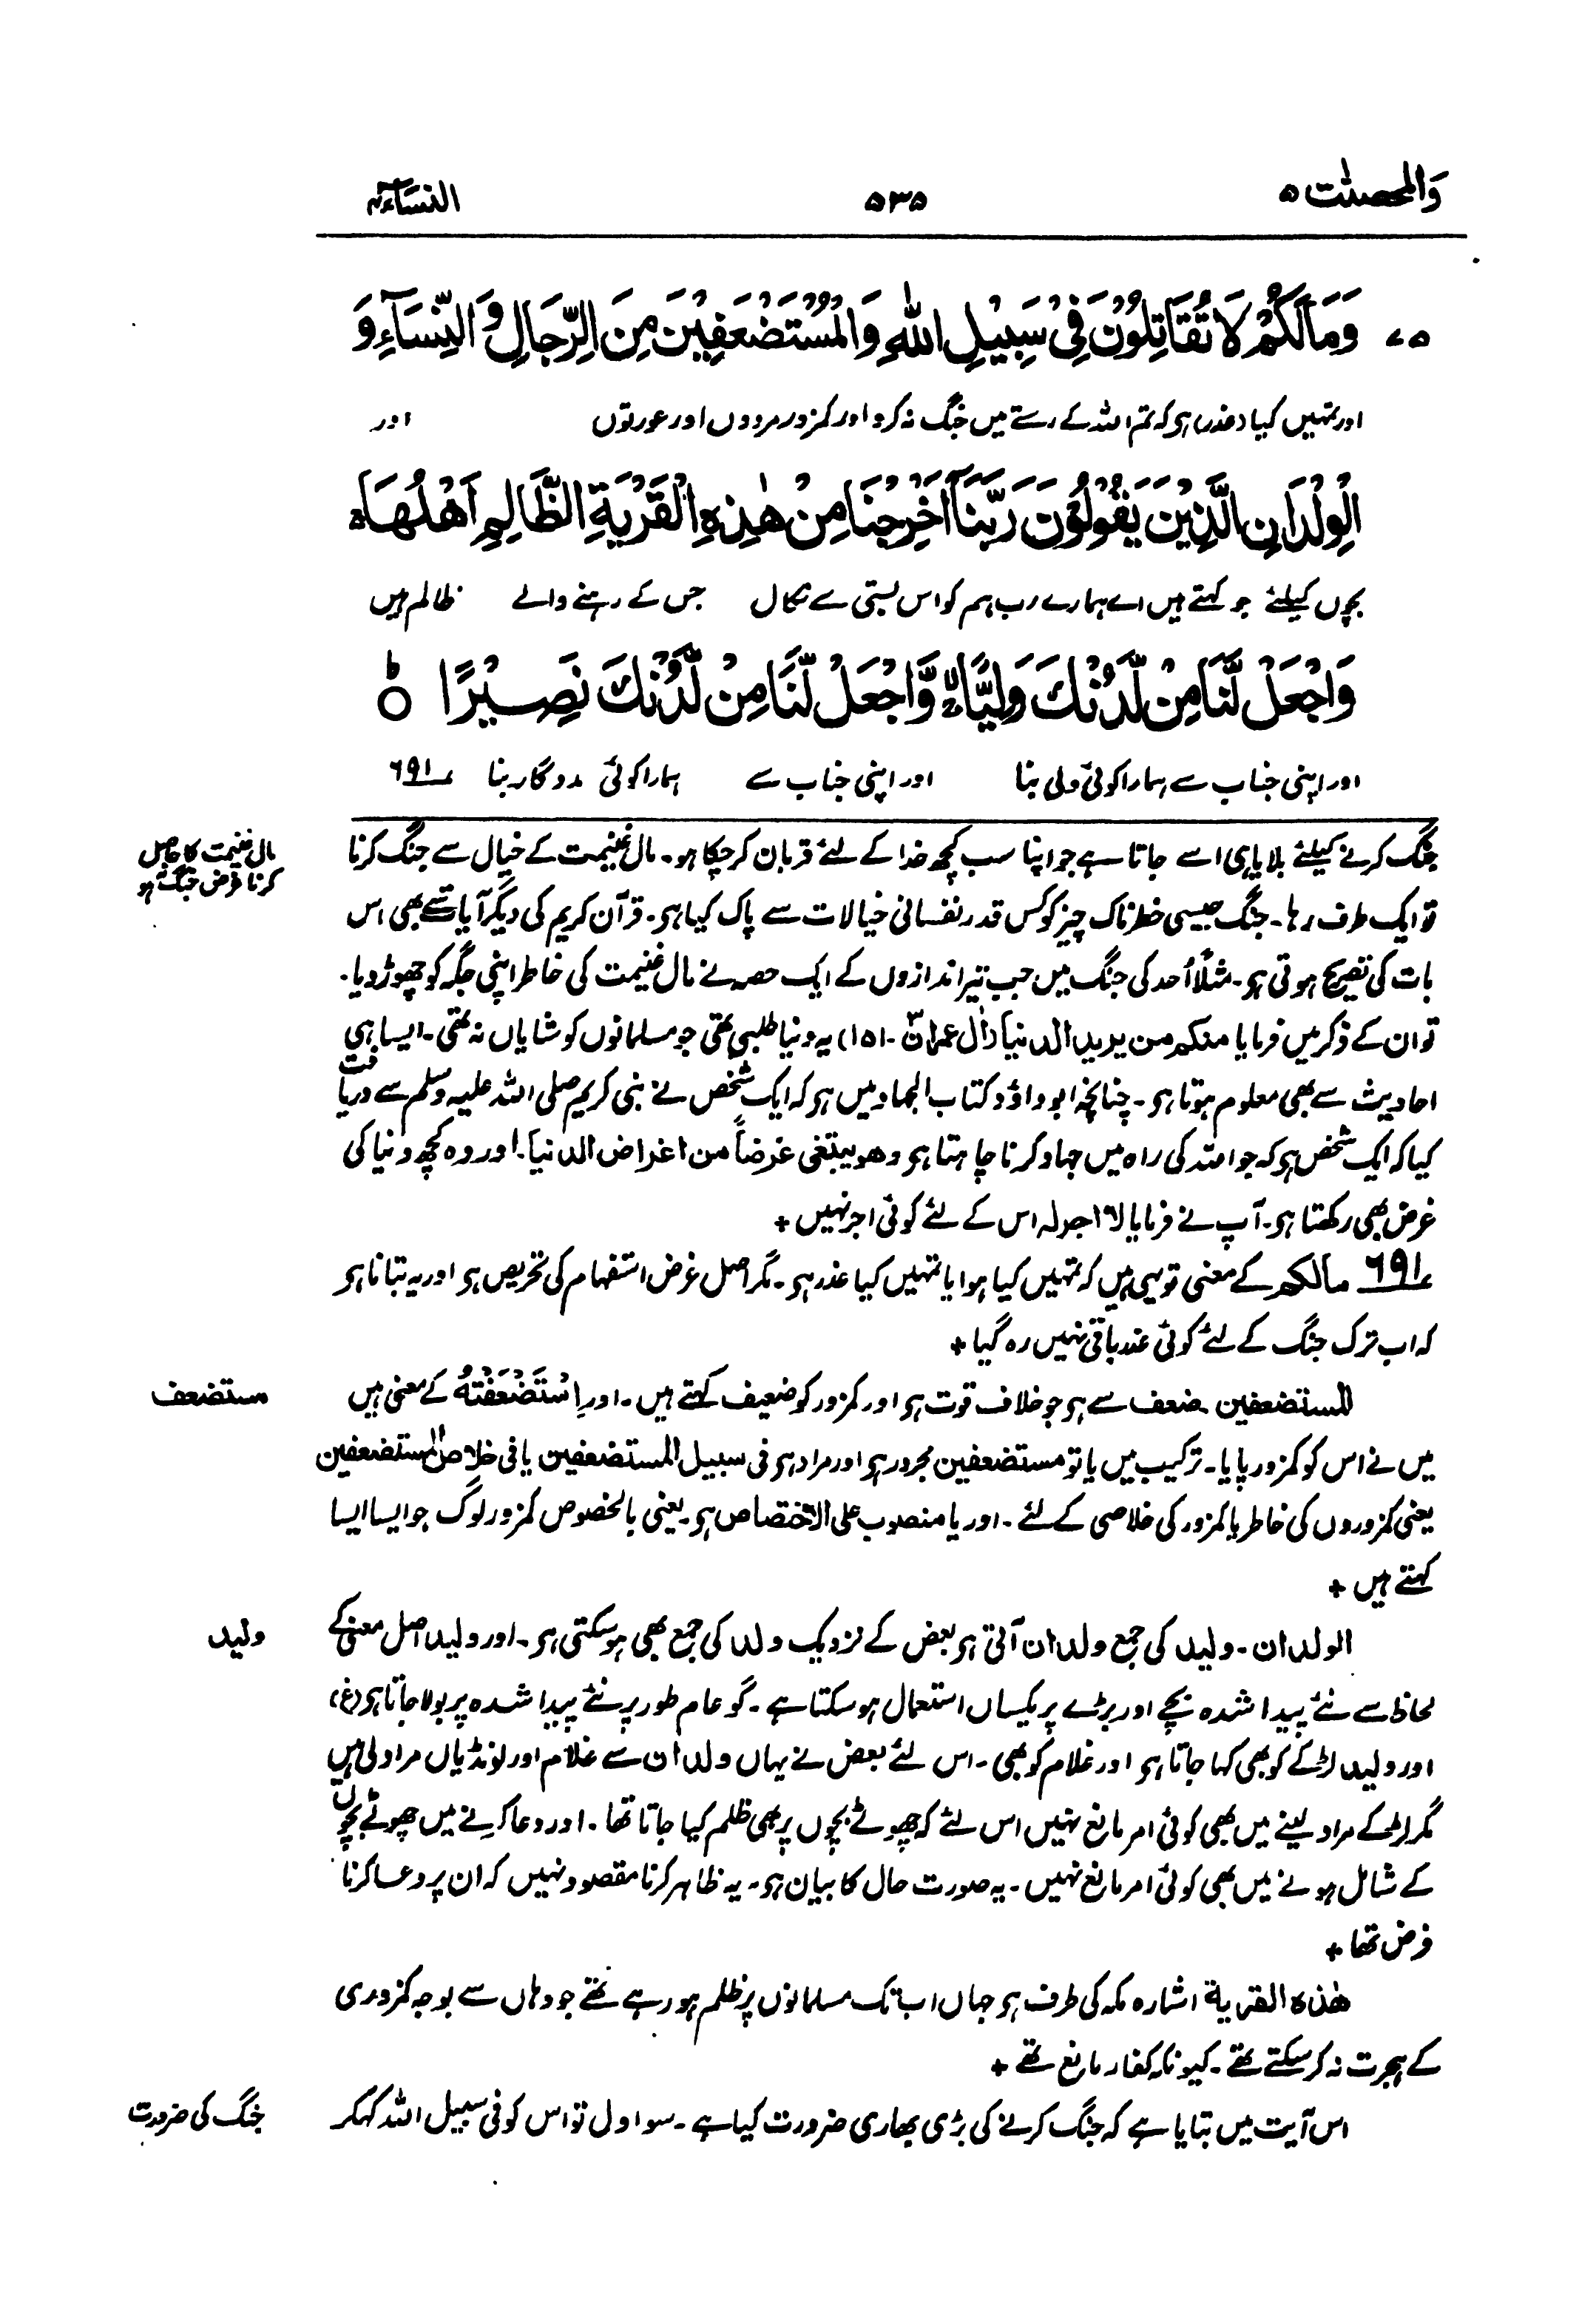 والمحصنٰت ۵
۵۳۵
النساء ۴
۷۵ وَمَا لَكُمْ لَا تُقَاتِلُوْنَ فِيْ سَبِيْلِ اللّٰهِ وَالْمُسْتَضْعَفِيْنَ مِنَ الرِّجَالِ وَالنِّسَآءِ وَ
اور تمہیں کیا (عذر) ہو کہ تم اللہ کے رستے میں جنگ نہ کرو اور کمزور مردوں اور عورتوں اور
الْوِلْدَانِ الَّذِيْنَ يَقُوْلُوْنَ رَبَّنَآ اَخْرِجْنَا مِنْ هٰذِهِ الْقَرْيَةِ الظَّالِمِ اَهْلُهَا ۚ
بچوں کیلئے جو کہتے ہیں اے ہمارے رب ہم کو اس بستی سے نکال جس کے رہنے والے ظالم ہیں
وَاجْعَلْ لَّنَا مِنْ لَّدُنْكَ وَلِيًّا ۙ وَّاجْعَلْ لَّنَا مِنْ لَّدُنْكَ نَصِيْرًا ۝ؕ
اور اپنی جناب سے ہمارا کوئی ولی بنا اور اپنی جناب سے ہمارا کوئی مددگار بنا ۶۹۱
جنگ کرنے کیلئے بلایا ہی اسے جاتا ہے جو اپنا سب کچھ خدا کے لئے قربان کر چکا ہو۔ مال غنیمت کے خیال سے جنگ کرنا
مال غنیمت کا حاصل
کرنا غرض جنگ نہ ہو
تو ایک طرف رہا۔ جنگ جیسی خطرناک چیز کو کس قدر نفسانی خیالات سے پاک کیا ہو۔ قرآن کریم کی دیگر آیات سے بھی اس
بات کی تصریح ہوتی ہو۔ مثلاً اُحد کی جنگ میں جب تیر اندازوں کے ایک حصہ نے مال غنیمت کی خاطر اپنی جگہ کو چھوڑ دیا۔
تو ان کے ذکر میں فرمایا منکم من یرید الدنیا (اٰل عمرانؔ ۔ ۱۵۱) یہ دنیا طلبی تھی جو مسلمانوں کو شایاں نہ تھی۔ ایسا ہی
احادیث سے بھی معلوم ہوتا ہو۔ چنانچہ ابو داؤد کتاب الجہاد میں ہو کہ ایک شخص نے نبی کریم صلی اللہ علیہ وسلم سے دریافت
کیا کہ ایک شخص ہو کہ جو اللہ کی راہ میں جہاد کرنا چاہتا ہو وھو یبتغی عرضاً من اعراض الدنیا۔ اور وہ کچھ دنیا کی
غرض بھی رکھتا ہو۔ آپ نے فرمایا لا اجرلہ اس کے لئے کوئی اجر نہیں +
۶۹۱ مالکم کے معنی تو یہی ہیں کہ تمہیں کیا ہوا یا تمہیں کیا عذر ہو۔ مگر اصل غرض استفہام کی تحریص ہو اور یہ بتانا ہو
کہ اب ترک جنگ کے لئے کوئی عذر باقی نہیں رہ گیا +
المستضعفین ۔ ضعف سے ہو جو خلاف قوت ہو اور کمزور کو ضعیف کہتے ہیں۔ اور اِسْتَضْعَفْتُهُ کے معنی ہیں
مستضعف
میں نے اس کو کمزور پایا۔ ترکیب میں یا تو مستضعفین مجرور ہو اور مراد ہو فی سبیل المستضعفین یا فی خلاص المستضعفین
یعنی کمزوروں کی خاطر یا کمزور کی خلاصی کے لئے۔ اور یا منصوب علی الاختصاص ہو۔ یعنی بالخصوص کمزور لوگ جو ایسا ایسا
کہتے ہیں +
الولدان ۔ ولید کی جمع ولدان آتی ہو بعض کے نزدیک ولد کی جمع بھی ہو سکتی ہو۔ اور ولید اصل معنی کے
ولید
لحاظ سے نئے پیدا شدہ بچے اور بڑے پر یکساں استعمال ہو سکتا ہے۔ گو عام طور پر نئے پیدا شدہ پر بولا جاتا ہو (غ)
اور ولید لڑکے کو بھی کہا جاتا ہو اور غلام کو بھی۔ اس لئے بعض نے یہاں ولدان سے غلام اور لونڈیاں مراد لی ہیں
مگر لڑکے مراد لینے میں بھی کوئی امر مانع نہیں اس لئے کہ چھوٹے بچوں پر بھی ظلم کیا جاتا تھا۔ اور دعا کرنے میں چھوٹے بچوں
کے شامل ہونے میں بھی کوئی امر مانع نہیں۔ یہ صورت حال کا بیان ہو۔ یہ ظاہر کرنا مقصود نہیں کہ ان پر دعا کرنا
فرض تھا +
ھٰذہ القریة اشارہ مکہ کی طرف ہو جہاں اب تک مسلمانوں پر ظلم ہو رہے تھے جو وہاں سے بوجہ کمزوری
کے ہجرت نہ کر سکتے تھے۔ کیونکہ کفار مانع تھے +
اس آیت میں بتایا ہے کہ جنگ کرنے کی بڑی بھاری ضرورت کیا ہے۔ سو اول تو اس کو فی سبیل اللہ کہکر
جنگ کی ضرورت